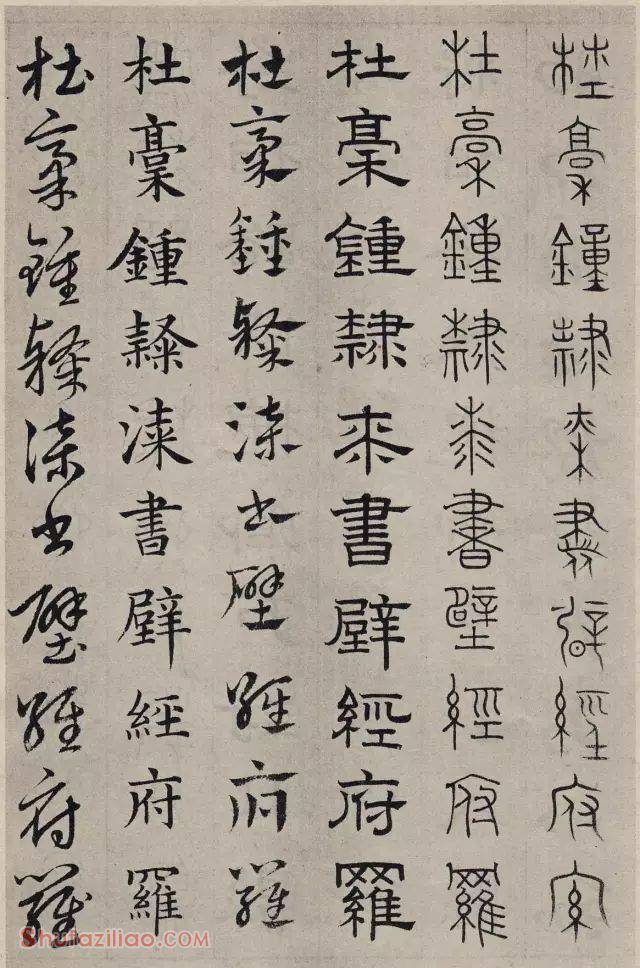 杜稾鐘隸桼書壁經府羅
杜稾鍾隸桼書壁經府羅
杜稾鍾隸桼書壁經府羅
杜稾鍾隸漆書壁經府羅
杜稾鍾隸漆書壁經府羅
杜稾鍾隸漆書壁經府羅
Shufaziliao.COM